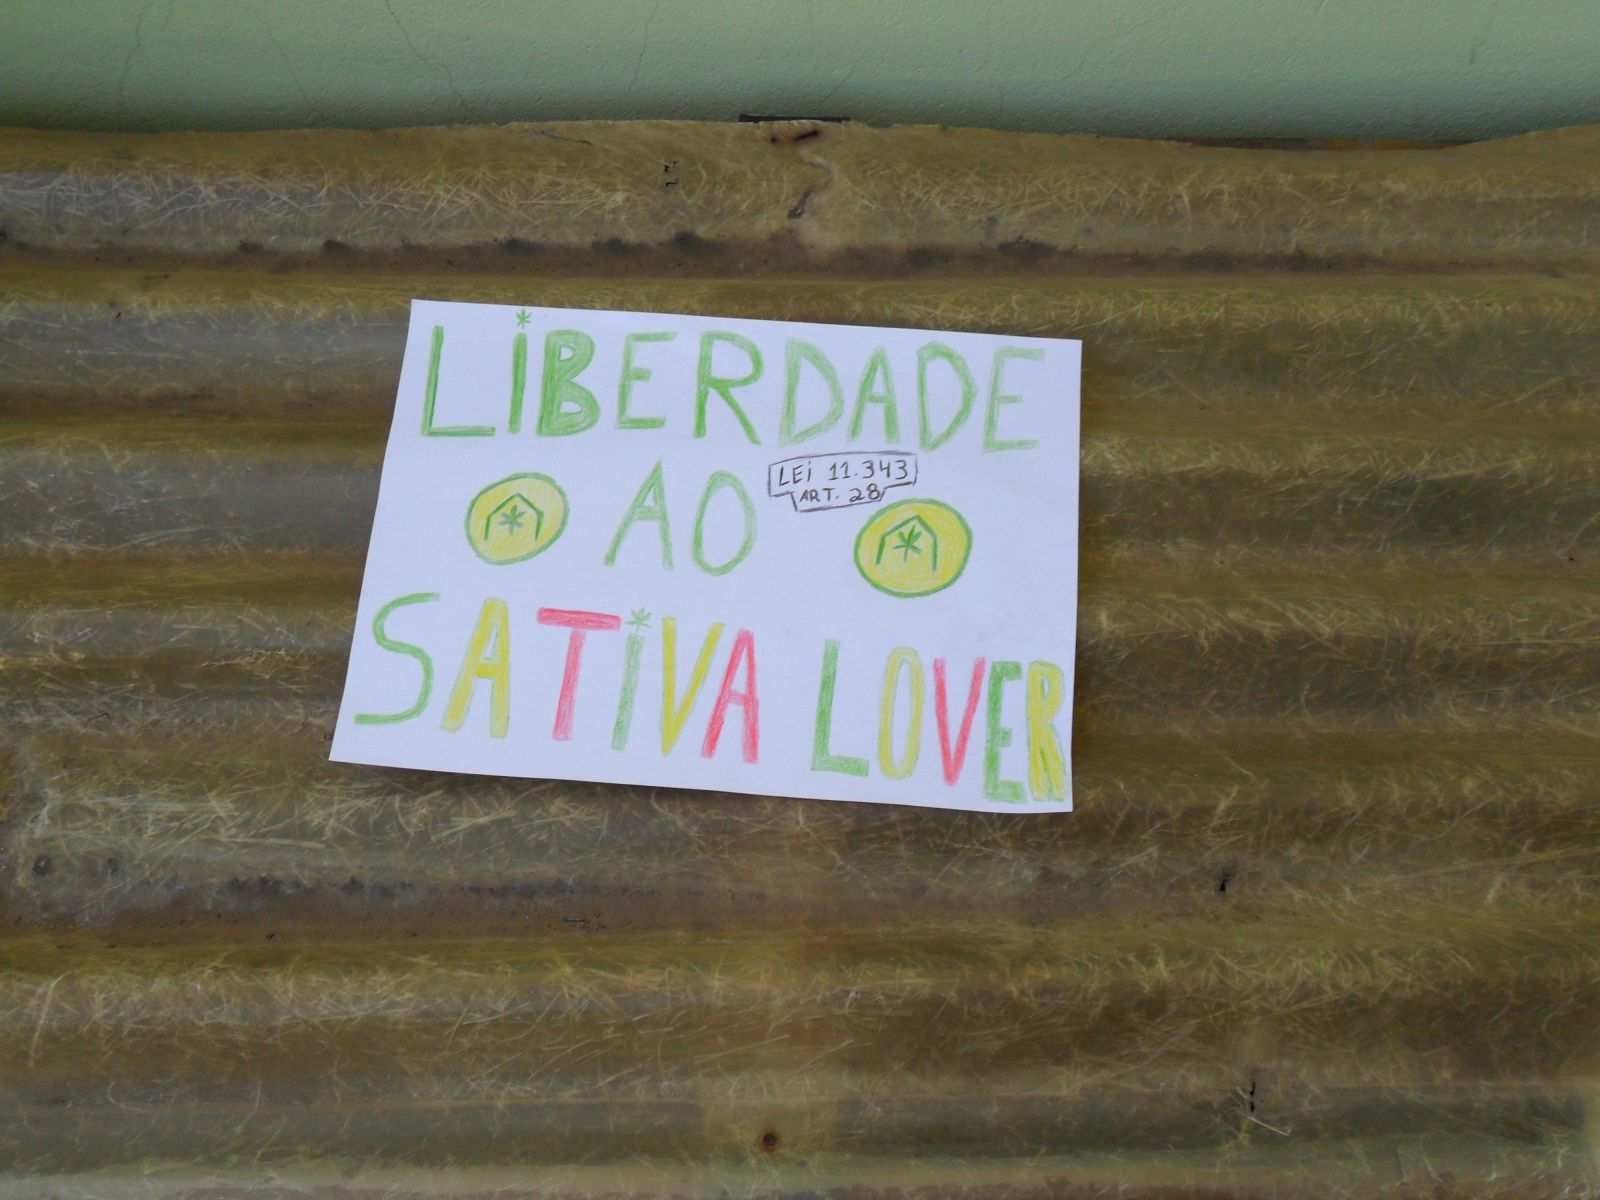 LiBERDADE
AO
LEi 11.343
ART. 28
SATiVA LOVER